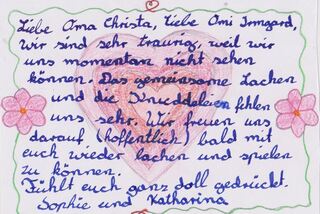 Liebe Oma Christa, Liebe Omi Irmgard,
wir sind sehr traurig, weil wir
uns momentan nicht sehen
können. Das gemeinsame Lachen
und die Knuddeleien fehlen
uns sehr. Wir freuen uns
darauf (hoffentlich) bald mit
euch wieder lachen und spielen
zu können.
Fühlt euch ganz doll gedrückt.
Sophie und Katharina